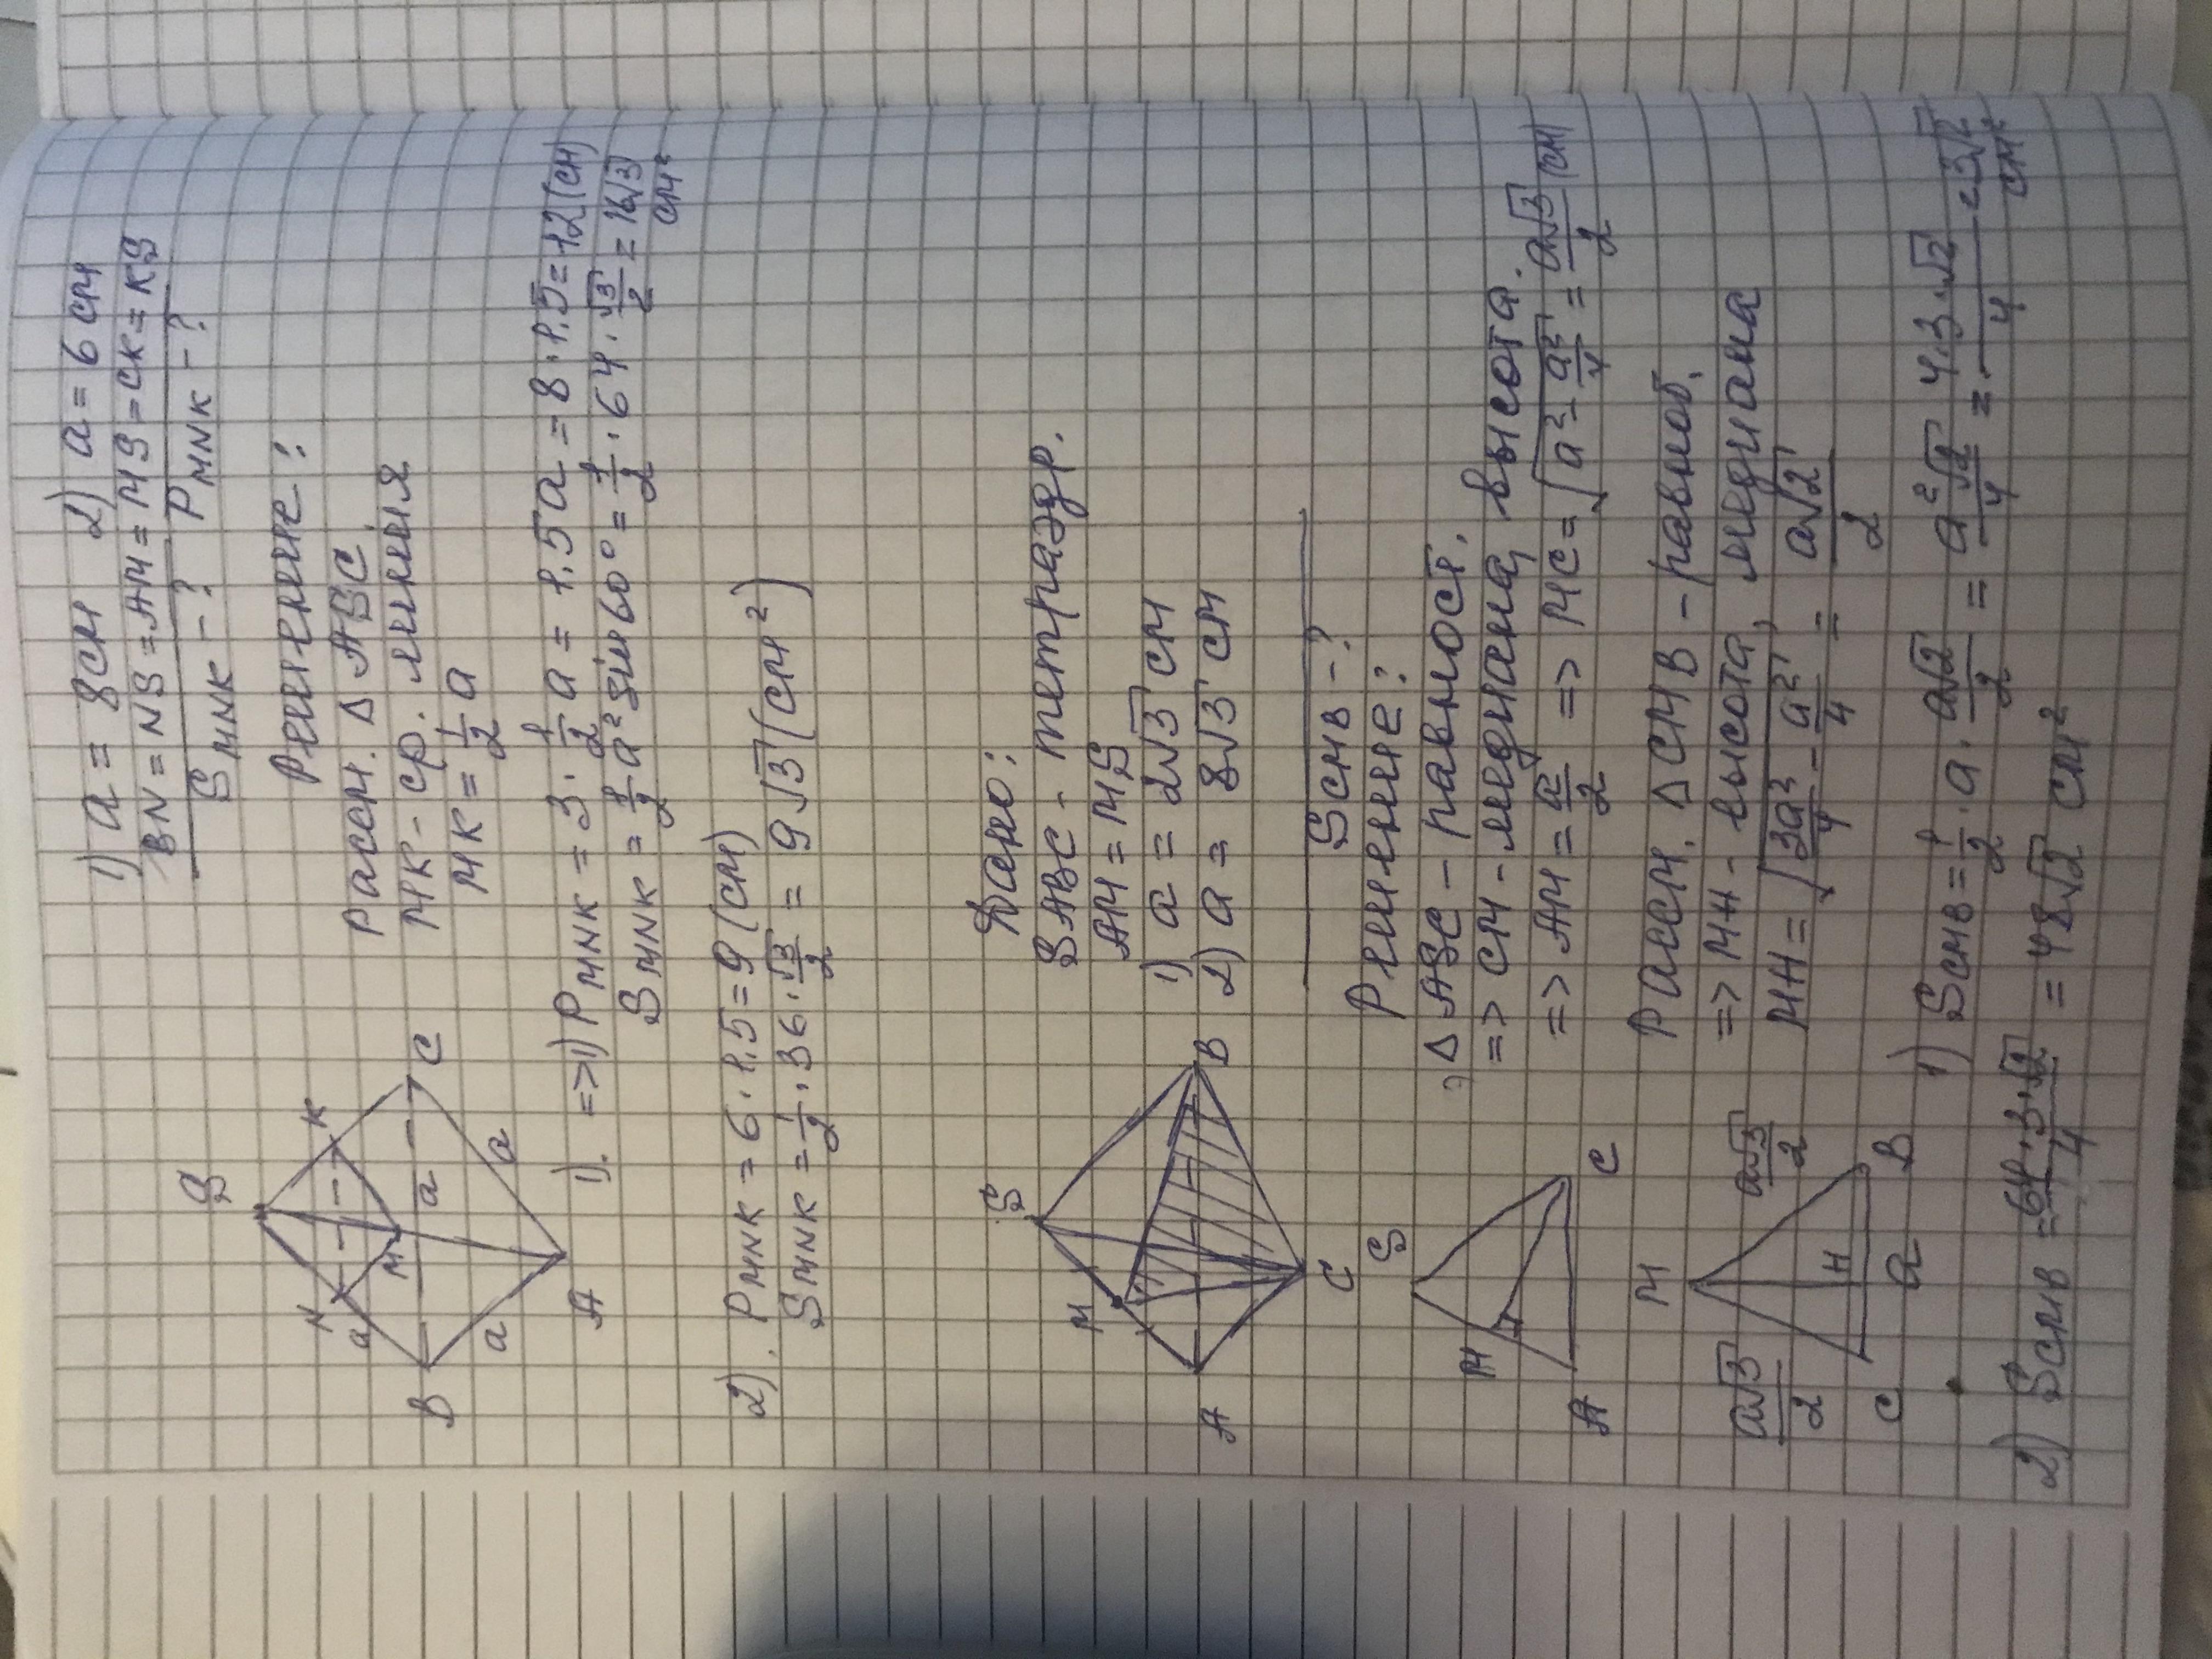 1) a = 8см 2) a = 6 см
BN = NS = AM = MS = CK = KS
S MNK - ? P MNK - ?
Решение:
Рассм. Δ ABC
MK - ср. линия
MK = 1/2 a
S
N K
a M a
B C
a a
A
1). => 1) P MNK = 3 · 1/2 a = 1.5a = 8 · 1.5 = 12 (см)
S MNK = 1/2 a² sin 60° = 1/2 · 64 · √3/2 = 16√3 см²
2). P MNK = 6 · 1.5 = 9 (см)
S MNK = 1/2 · 36 · √3/2 = 9√3 (см²)
Дано:
SABC - тетраэдр.
AM = MS
1) a = 2√3 см
2) a = 8√3 см
S CMB - ?
S
M
A B
C
Решение:
Δ ASC - равност.
=> CM - медиана, высота.
=> AM = a/2 => MC = √(a² - a²/4) = a√3/2 (см)
S
M
A C
Рассм. Δ CMB - равноб.
=> MH - высота, медиана
MH = √(3a²/4 - a²/4) = a√2/2
M
a√3/2 a√3/2
H
C a B
1) S CMB = 1/2 · a · a√2/2 = a²√2/4 = 4·3·√2/4 = 3√2 см²
2) S CMB = 64·3·√2/4 = 48√2 см²